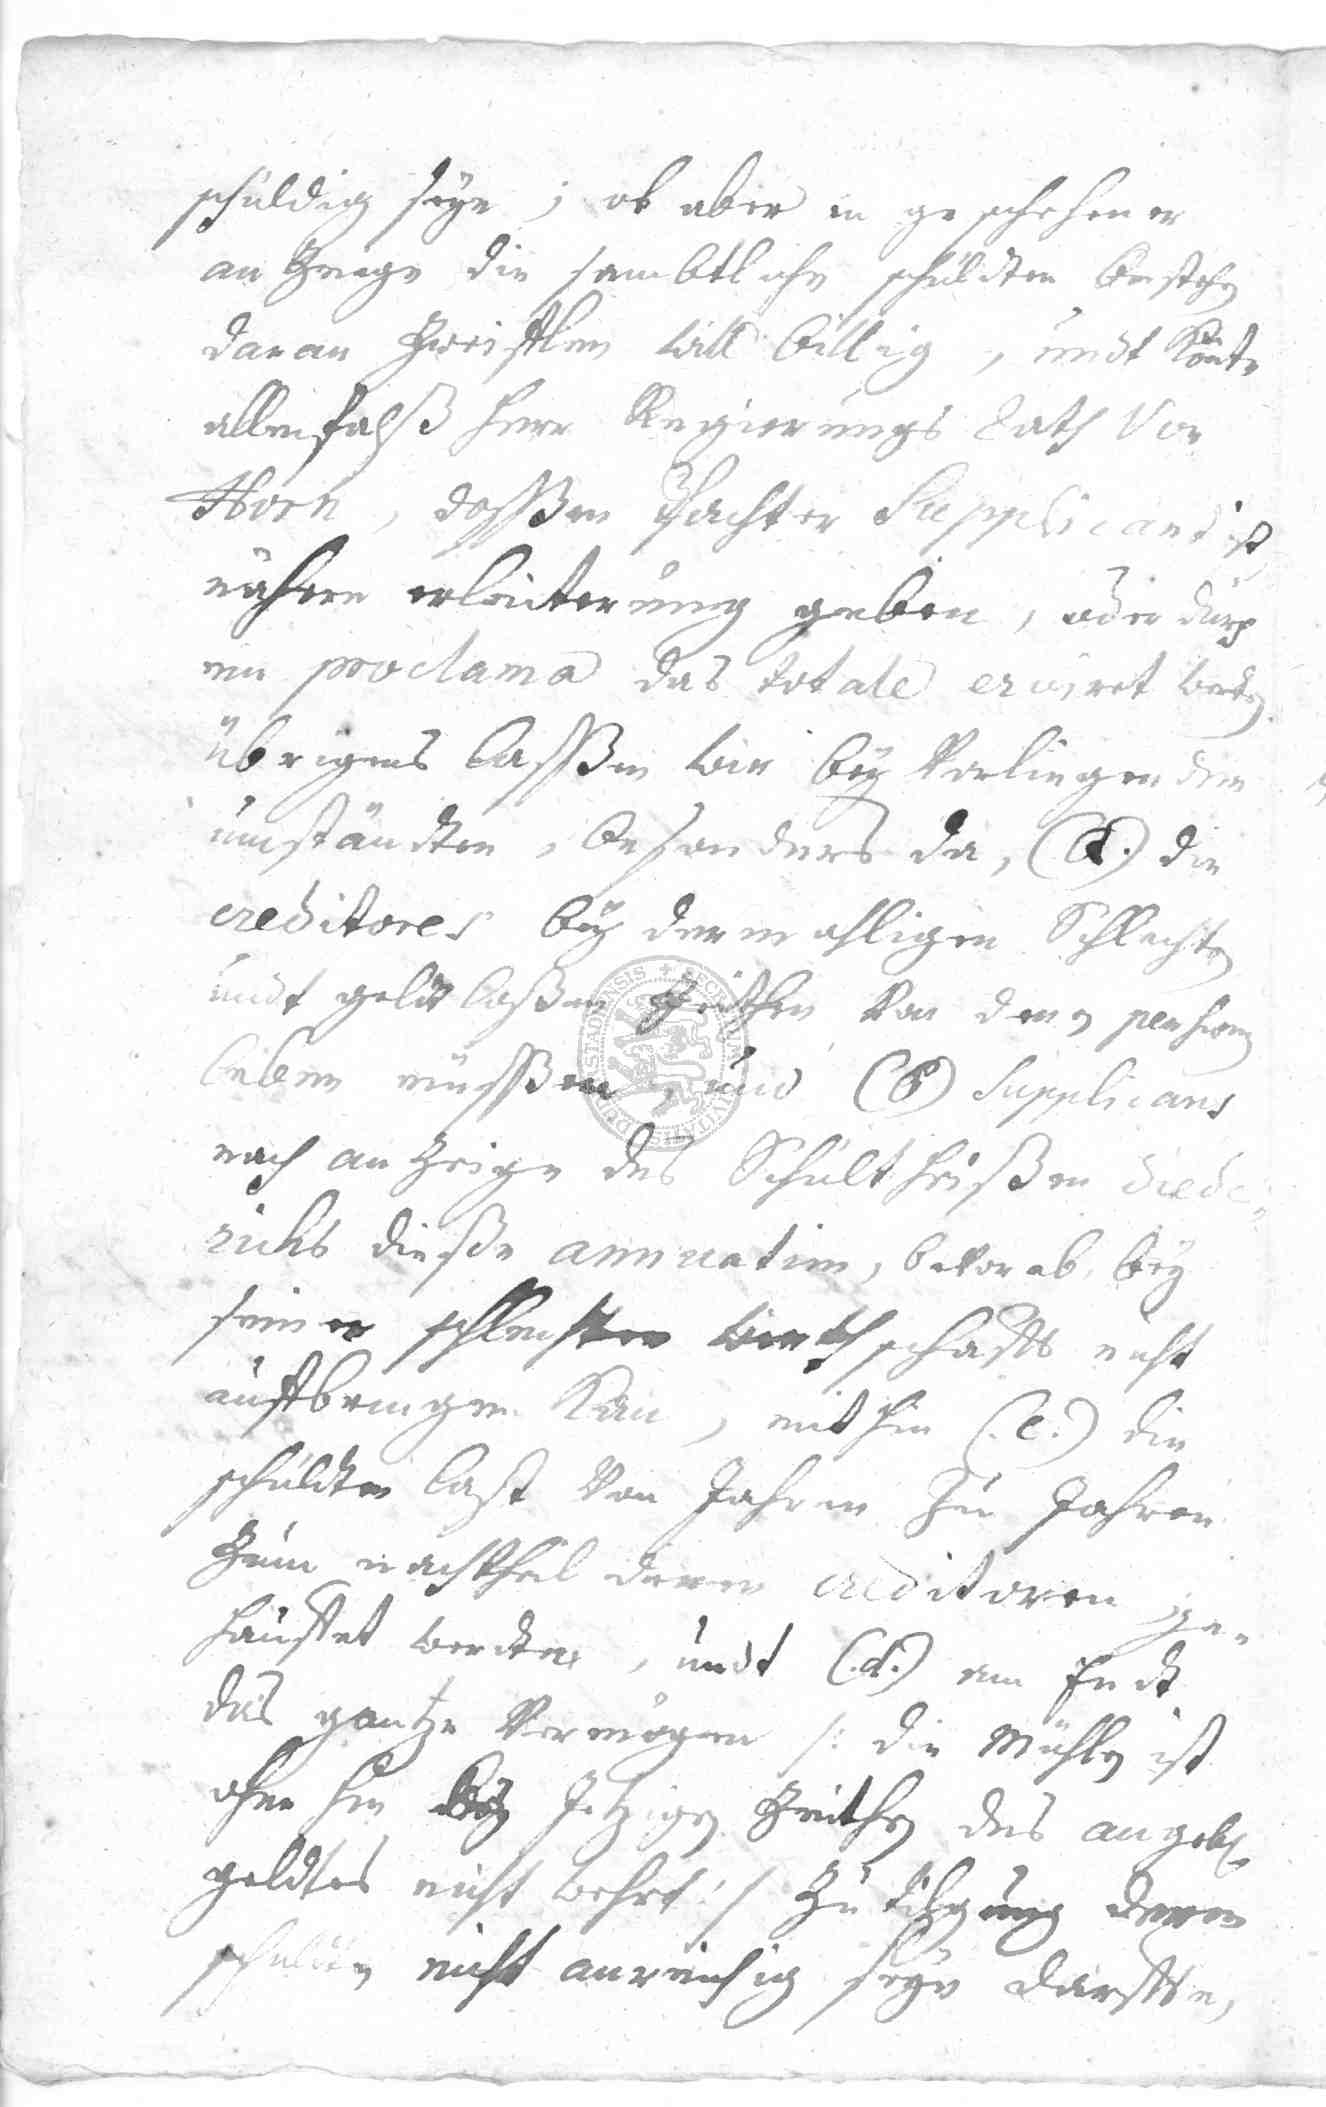 schuldig seye ; ob aber in geschehener
an Zeige die sambtliche schuldten bestehen
daran Zweifflen will billig , undt Könte
allenfalß Herr Regierungs Rath Von
Horn , deßßen Pachter Supplicant ist
nähere erleuterung geben , oder durch
ein proclama das totale eruiret werden
übrigens laßßen wir bey Vorliegenden
umständten , besonders da , (a.) die
creditores bey dermahligen Schlechten
undt geldtloßen Zeithen Von denen pensionen
leben müeßßen , und (b) Supplicans
nach an Zeige des Schultheißen Diede-
richs dieße annuatim , bevorab bey
seiner schlechter wirthschafft nicht
auffbringen Kan , mithin (.c.) die
schuldten last Von Jahren Zu Jahren
Zum nachtheil deren creditoren ge-
häuffet werdten , undt (.d.) am Endt
das gantze Vermögen /: die Mühle ist
ohne hin bey Jtzigen Zeithen des angeb.
geldtes nicht wehrt :/ Zu tilgung deren
schuldten nicht anreichig seyn dörffte ,
SECRETUM CIVITATIS